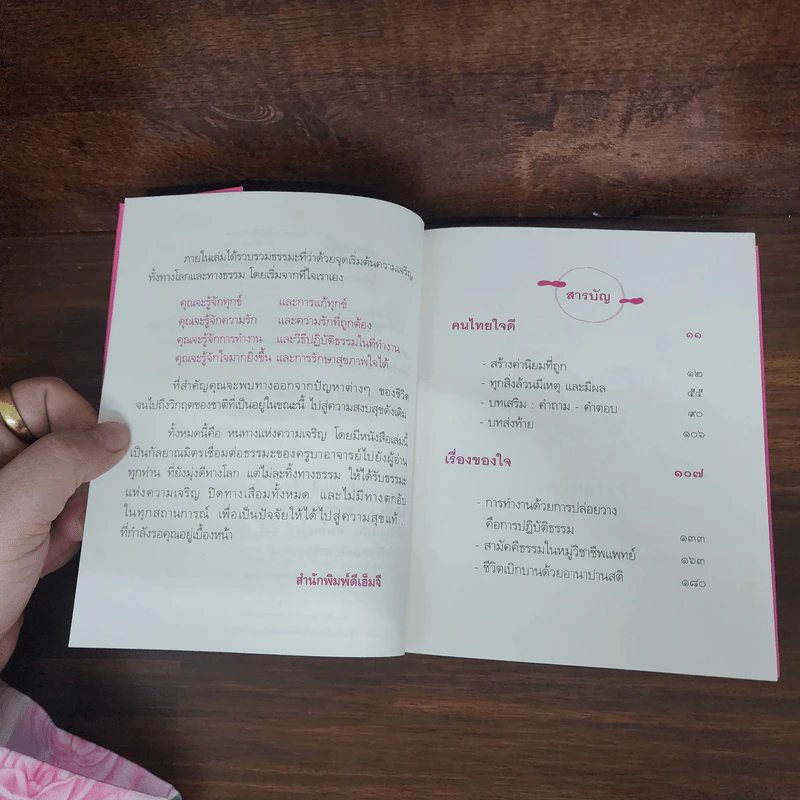 ภายในเล่มได้รวบรวมธรรมะที่ว่าด้วยจุดเริ่มต้นความเจริญ
ทั้งทางโลกและทางธรรม โดยเริ่มจากที่ใจเราเอง
คุณจะรู้จักทุกข์ และการแก้ทุกข์
คุณจะรู้จักความรัก และความรักที่ถูกต้อง
คุณจะรู้จักการทำงาน และวิธีปฏิบัติธรรมในที่ทำงาน
คุณจะรู้จักใจมากยิ่งขึ้น และการรักษาสุขภาพใจได้
ที่สำคัญคุณจะพบทางออกจากปัญหาต่างๆ ของชีวิต
จนไปถึงวิกฤตของชาติที่เป็นอยู่ในขณะนี้ ไปสู่ความสงบสุขดังเดิม
ทั้งหมดนี้คือ หนทางแห่งความเจริญ โดยมีหนังสือเล่มนี้
เป็นกัลยาณมิตรเชื่อมต่อธรรมะของครูบาอาจารย์ไปยังผู้อ่าน
ทุกท่าน ที่ยังมุ่งดีทางโลก แต่ไม่ละทิ้งทางธรรม ให้ได้รับธรรมะ
แห่งความเจริญ ปิดทางเสื่อมทั้งหมด และไม่มีทางตกอับ
ในทุกสถานการณ์ เพื่อเป็นปัจจัยให้ได้ไปสู่ความสุขแท้
ที่กำลังรอคุณอยู่เบื้องหน้า
สำนักพิมพ์ดีเอ็มจี
สารบัญ
คนไทยใจดี ๑๑
- สร้างค่านิยมที่ถูก ๑๒
- ทุกสิ่งล้วนมีเหตุ และมีผล ๕๕
- บทเสริม : คำถาม - คำตอบ ๙๐
- บทส่งท้าย ๑๐๖
เรื่องของใจ ๑๐๗
- การทำงานด้วยการปล่อยวาง
คือการปฏิบัติธรรม ๑๓๓
- สามัคคีธรรมในหมู่วิชาชีพแพทย์ ๑๖๓
- ชีวิตเบิกบานด้วยอานาปานสติ ๑๘๐